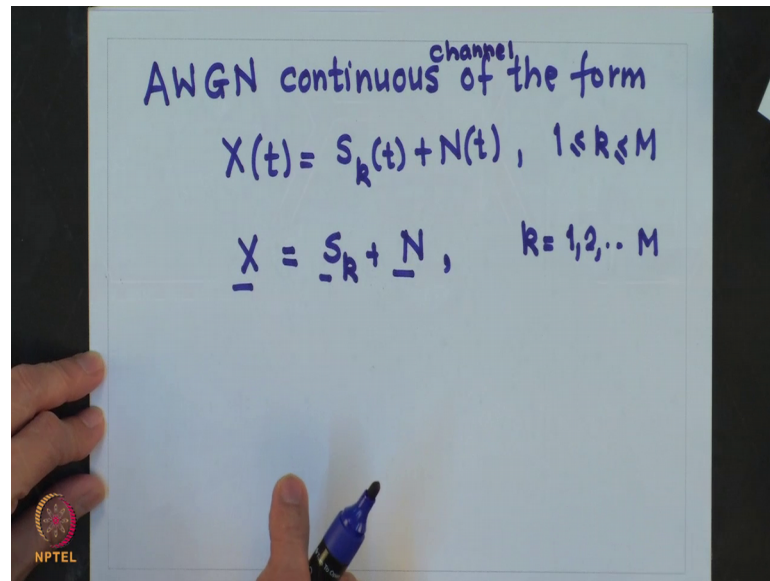 AWGN continuous channel of the form
X(t) = S_k(t) + N(t) , 1 ≤ k ≤ M
X = S_k + N , k = 1,2,.. M
NPTEL